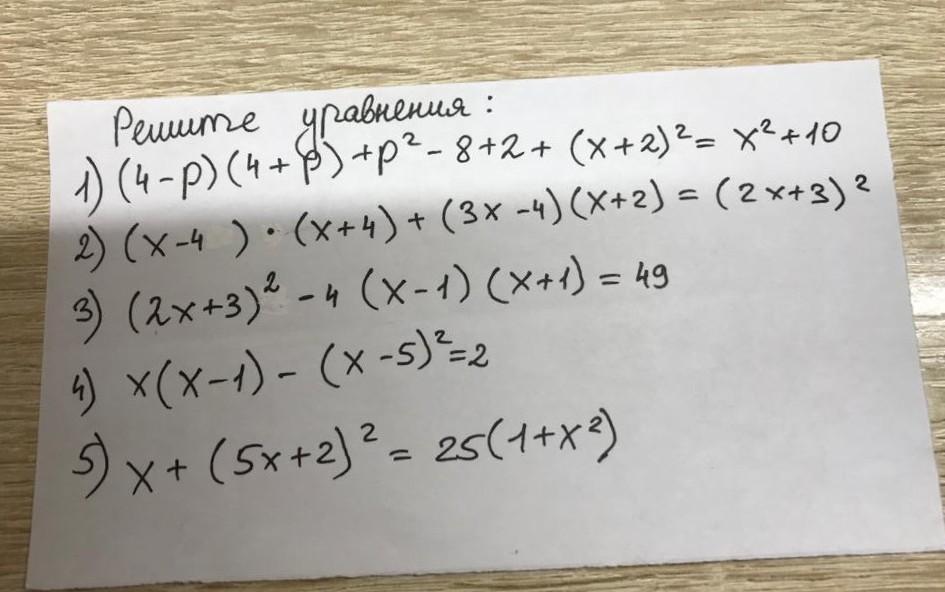 Решите уравнения:
1) (4-p)(4+p)+p²-8+2+(x+2)²=x²+10
2) (x-4)·(x+4)+(3x-4)(x+2)=(2x+3)²
3) (2x+3)²-4(x-1)(x+1)=49
4) x(x-1)-(x-5)²=2
5) x+(5x+2)²=25(1+x²)